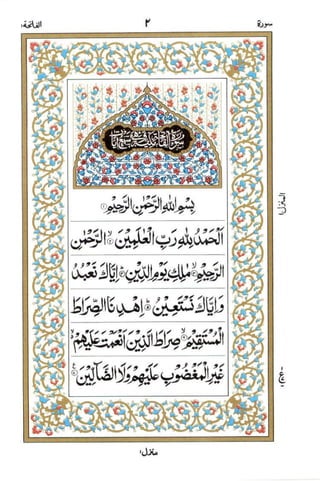 الفاتحة ١
٢
سورة
سورة الفاتحة مكية وهي سبع آيات
بِسْمِ اللهِ الرَّحْمٰنِ الرَّحِيْمِ ۝
اَلْحَمْدُ لِلّٰهِ رَبِّ الْعٰلَمِيْنَ ۝ الرَّحْمٰنِ
الرَّحِيْمِ ۝ مٰلِكِ يَوْمِ الدِّيْنِ ۝ اِيَّاكَ نَعْبُدُ
وَاِيَّاكَ نَسْتَعِيْنُ ۝ اِهْدِنَا الصِّرَاطَ
الْمُسْتَقِيْمَ ۝ صِرَاطَ الَّذِيْنَ اَنْعَمْتَ عَلَيْهِمْ
غَيْرِ الْمَغْضُوْبِ عَلَيْهِمْ وَلَا الضَّآلِّيْنَ ۝
المنزل ١
منزل ١